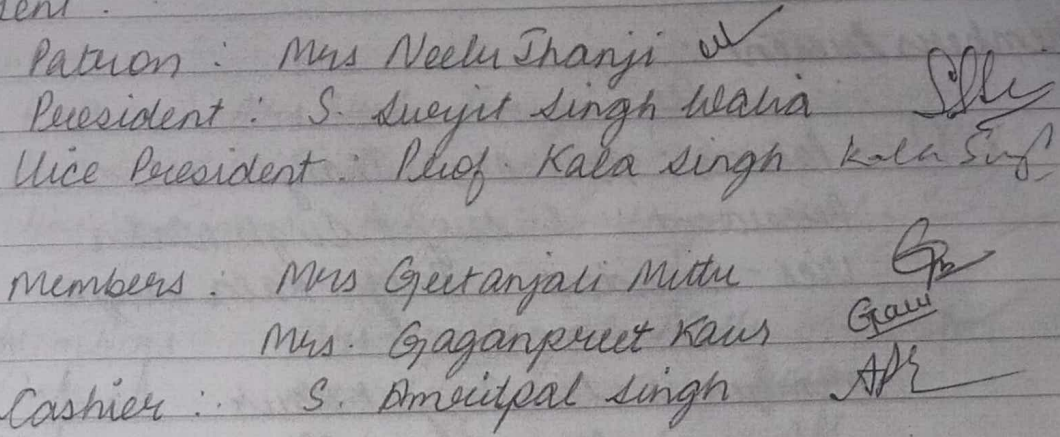 Patron : Mrs Neelu Jhanji
President : S. Surjit Singh Walia
Vice President : Prof. Kala Singh Kala Singh
Members : Mrs Geetanjali Mittu
Mrs. Gaganpreet Kaur Gaur
Cashier : S. Amritpal Singh APS